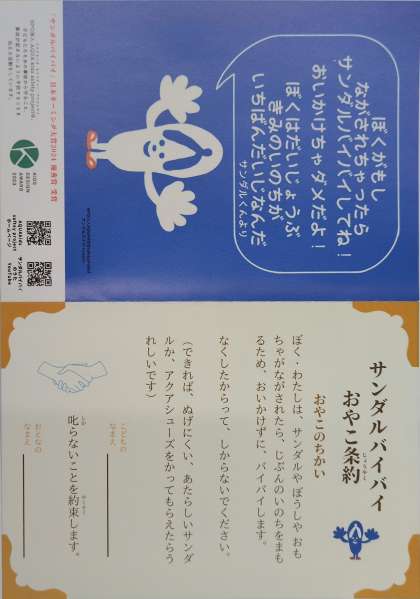 ぼくがもし
ながされちゃったら
サンダルバイバイしてね！
おいかけちゃダメだよ！
ぼくはだいじょうぶ
きみのいのちが、
いちばんだいじなんだ
サンダルくんより
「サンダルバイバイ」日本ネーミング大賞2024 優秀賞 受賞
KIDS
DESIGN
AWARD
2023
AQUAkids
safety project
ホームページ
サンダルバイバイ
のうた
YouTube
サンダルバイバイ
おやこ条約
じょうやく
おやこのちかい
ぼく・わたしは、サンダルや ぼうしや おも
ちゃがながされたら、じぶんのいのちをまも
るため、おいかけずに、バイバイします。
なくしたからって、しからないでください。
（できれば、ぬげにくい、あたらしいサンダ
ルか、アクアシューズをかってもらえたらう
れしいです）
こどもの
なまえ
叱らないことを約束します。
しか
やくそく
おとなの
なまえ